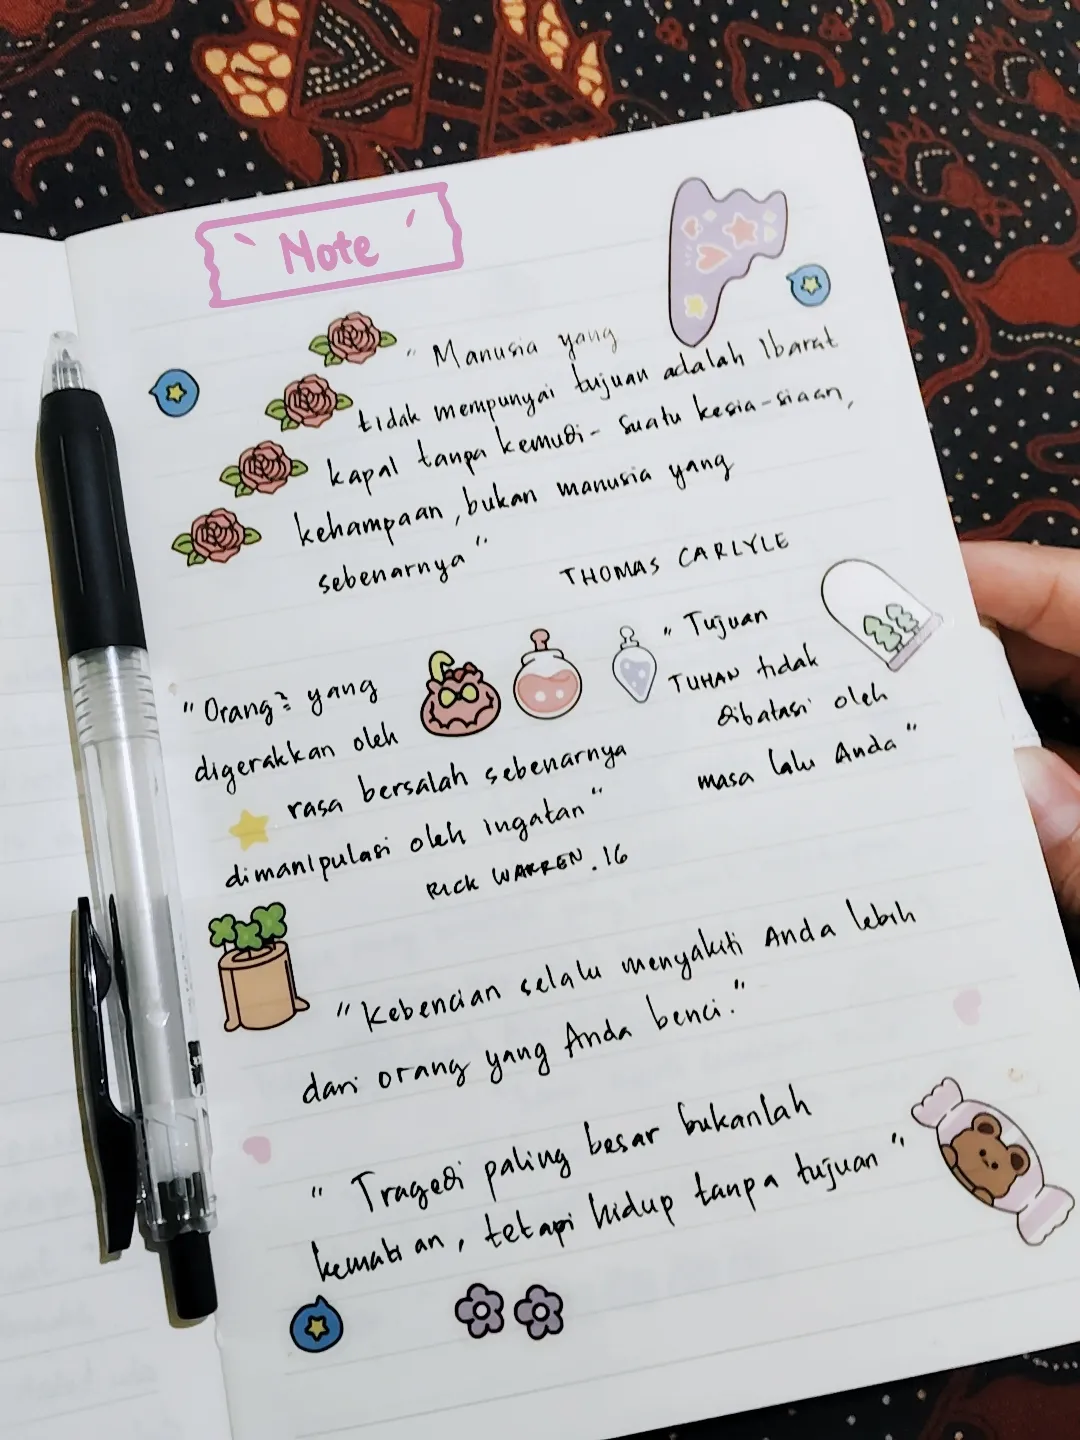 Note
" Manusia yang
tidak mempunyai tujuan adalah Ibarat
kapal tanpa kemudi - suatu kesia-siaan,
kehampaan, bukan manusia yang
sebenarnya "
THOMAS CARLYLE
" Orang² yang
digerakkan oleh
rasa bersalah sebenarnya
dimanipulasi oleh ingatan "
RICK WARREN . 16
" Tujuan
TUHAN tidak
dibatasi oleh
masa lalu Anda "
" Kebencian selalu menyakiti Anda lebih
dari orang yang Anda benci. "
" Tragedi paling besar bukanlah
kematian, tetapi hidup tanpa tujuan "